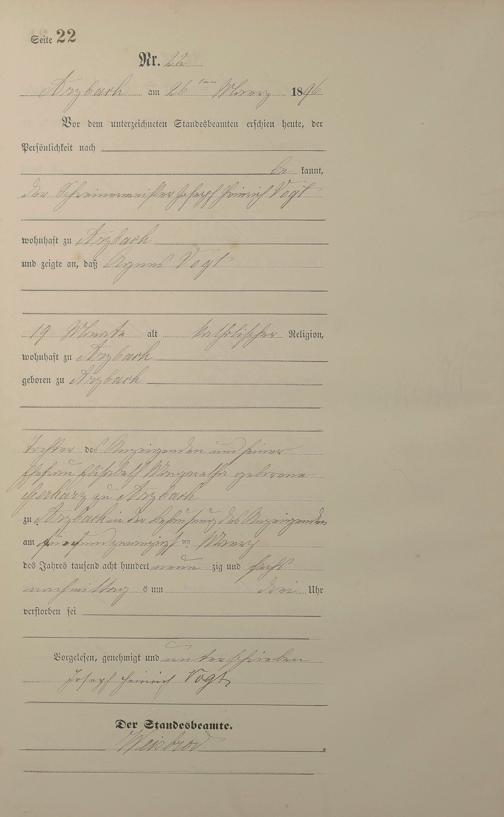 Seite 22
Nr. 22
Arzbach am 26 ten Maerz 1896
Vor dem unterzeichneten Standesbeamten erschien heute, der
Persönlichkeit nach
be kannt,
der Schreinermeister Joseph Heinrich Vogt
wohnhaft zu Arzbach
und zeigte an, daß Agnes Vogt
19 Monate alt katholischer Religion,
wohnhaft zu Arzbach
geboren zu Arzbach
Tochter des Anzeigenden und seiner
Ehefrau Elisabeth Margaretha geborene
Gerharz zu Arzbach
zu Arzbach in der Behausung des Anzeigenden
am fünfundzwanzigsten Maerz
des Jahres tausend acht hundert neun zig und sechs
nachmittag s um drei Uhr
verstorben sei
Vorgelesen, genehmigt und unterschrieben
Joseph Heinrich Vogt
Der Standesbeamte.
Weisbrod